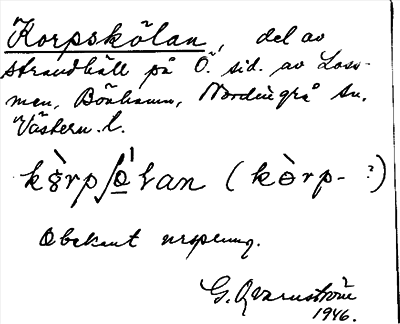 Korpskölan, del av
strandhäll på Ö. sid. av Loso-
men, Bönhamn, Nordingrå sn.
Västern. l.
(kòrp- ?)
Obekant ursprung.
G. Qvarnström
1946.